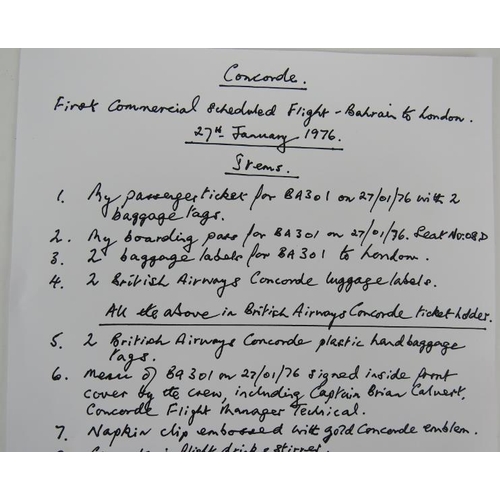 Concorde.
First Commercial Scheduled Flight - Bahrain to London.
27th January 1976.
Items.
1. My passenger ticket for BA301 on 27/01/76 with 2
baggage tags.
2. My boarding pass for BA301 on 27/01/76. Seat No: 08D
3. 2 baggage labels for BA301 to London.
4. 2 British Airways Concorde luggage labels.
All the above in British Airways Concorde ticket holder.
5. 2 British Airways Concorde plastic hand baggage
tags.
6. Menu of BA301 on 27/01/76 signed inside front
cover by the crew, including Captain Brian Calvert,
Concorde Flight Manager Technical.
7. Napkin clip embossed with gold Concorde emblem.